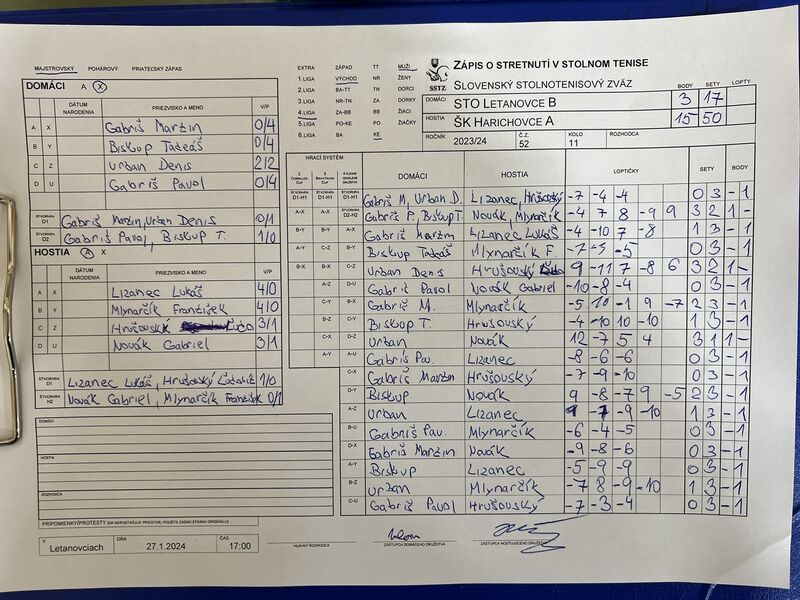 MAJSTROVSKÝ POHÁROVÝ PRIATEĽSKÝ ZÁPAS
DOMÁCI A X
DÁTUM NARODENIA PRIEZVISKO A MENO V/P
A X Gabriš Martin 0/4
B Y Biskup Tadeáš 0/4
C Z Urban Denis 2/2
D U Gabriš Pavol 0/4
ŠTVORHRA D1 Gabriš Martin, Urban Denis 0/1
ŠTVORHRA D2 Gabriš Pavol, Biskup T. 1/0
HOSTIA A X
DÁTUM NARODENIA PRIEZVISKO A MENO V/P
A X Lizanec Lukáš 4/0
B Y Mlynarčík František 4/0
C Z Hrušouský 3/1
D U Novák Gabriel 3/1
ŠTVORHRA D1 Lizanec Lukáš, Hrušouský 1/0
ŠTVORHRA H2 Novák Gabriel, Mlynarčík František 0/1
DOMÁCI
HOSTIA
ROZHODCA
PRIPOMIENKY/PROTESTY (AK NEPOSTAČUJE PRIESTOR, POUŽITE ZADNÚ STRANU ORIGINÁLU)
V Letanovciach DŇA 27.1.2024 ČAS 17:00
EXTRA ZÁPAD TT MUŽI
1.LIGA VÝCHOD NR ŽENY
2.LIGA BA-TT TN DORCI
3.LIGA NR-TN ZA DORKY
4.LIGA ZA-BB BB ŽIACI
5.LIGA PO-KE PO ŽIAČKY
6.LIGA BA KE
SSTZ
ZÁPIS O STRETNUTÍ V STOLNOM TENISE
SLOVENSKÝ STOLNOTENISOVÝ ZVÄZ
BODY SETY LOPTY
DOMÁCI STO LETANOVCE B 3 17
HOSTIA ŠK HARICHOVCE A 15 50
ROČNÍK 2023/24 Č.Z. 52 KOLO 11 ROZHODCA
HRACÍ SYSTÉM DOMÁCI HOSTIA LOPTIČKY SETY BODY
D1-H1 D1-H1 D1-H1 Gabriš M, Urban D. Lizanec, Hrušouský -7 -4 -4 0 3 -1
A-X A-X D2-H2 Gabriš P, Biskup T. Novák, Mlynarčík -4 7 8 -9 9 3 2 1-
B-Y B-Y A-X Gabriš Martin Lizanec Lukáš -4 -10 7 -8 1 3 -1
A-Y C-Z B-Y Biskup Tadeáš Mlynarčík F. -7 -5 -5 0 3 -1
B-X B-X C-Z Urban Denis Hrušouský 9 -11 7 -8 6 3 2 1-
D-U Gabriš Pavol Novák Gabriel -10 -8 -4 0 3 -1
C-Y B-X Gabriš M. Mlynarčík -5 10 -1 9 -7 2 3 -1
C-Y Biskup T. Hrušouský -4 -10 10 -10 1 3 -1
C-X D-Z Urban Novák 12 -7 5 4 3 1 1-
A-Y A-U Gabriš Pav. Lizanec -8 -6 -6 0 3 -1
C-X Gabriš Martin Hrušouský -7 -9 -10 0 3 -1
D-Y Biskup Novák 9 -8 -7 9 -5 2 3 -1
A-Z Urban Lizanec 9 -7 -9 -10 1 3 -1
B-U Gabriš Pav. Mlynarčík -6 -4 -5 0 3 -1
D-X Gabriš Martin Novák -9 -8 -6 0 3 -1
A-Y Biskup Lizanec -5 -9 -9 0 3 -1
B-Z Urban Mlynarčík -7 8 -9 -10 1 3 -1
C-U Gabriš Pavol Hrušouský -7 -3 -4 0 3 -1
HLAVNÝ ROZHODCA ZÁSTUPCA DOMÁCEHO DRUŽSTVA ZÁSTUPCA HOSŤUJÚCEHO DRUŽSTVA